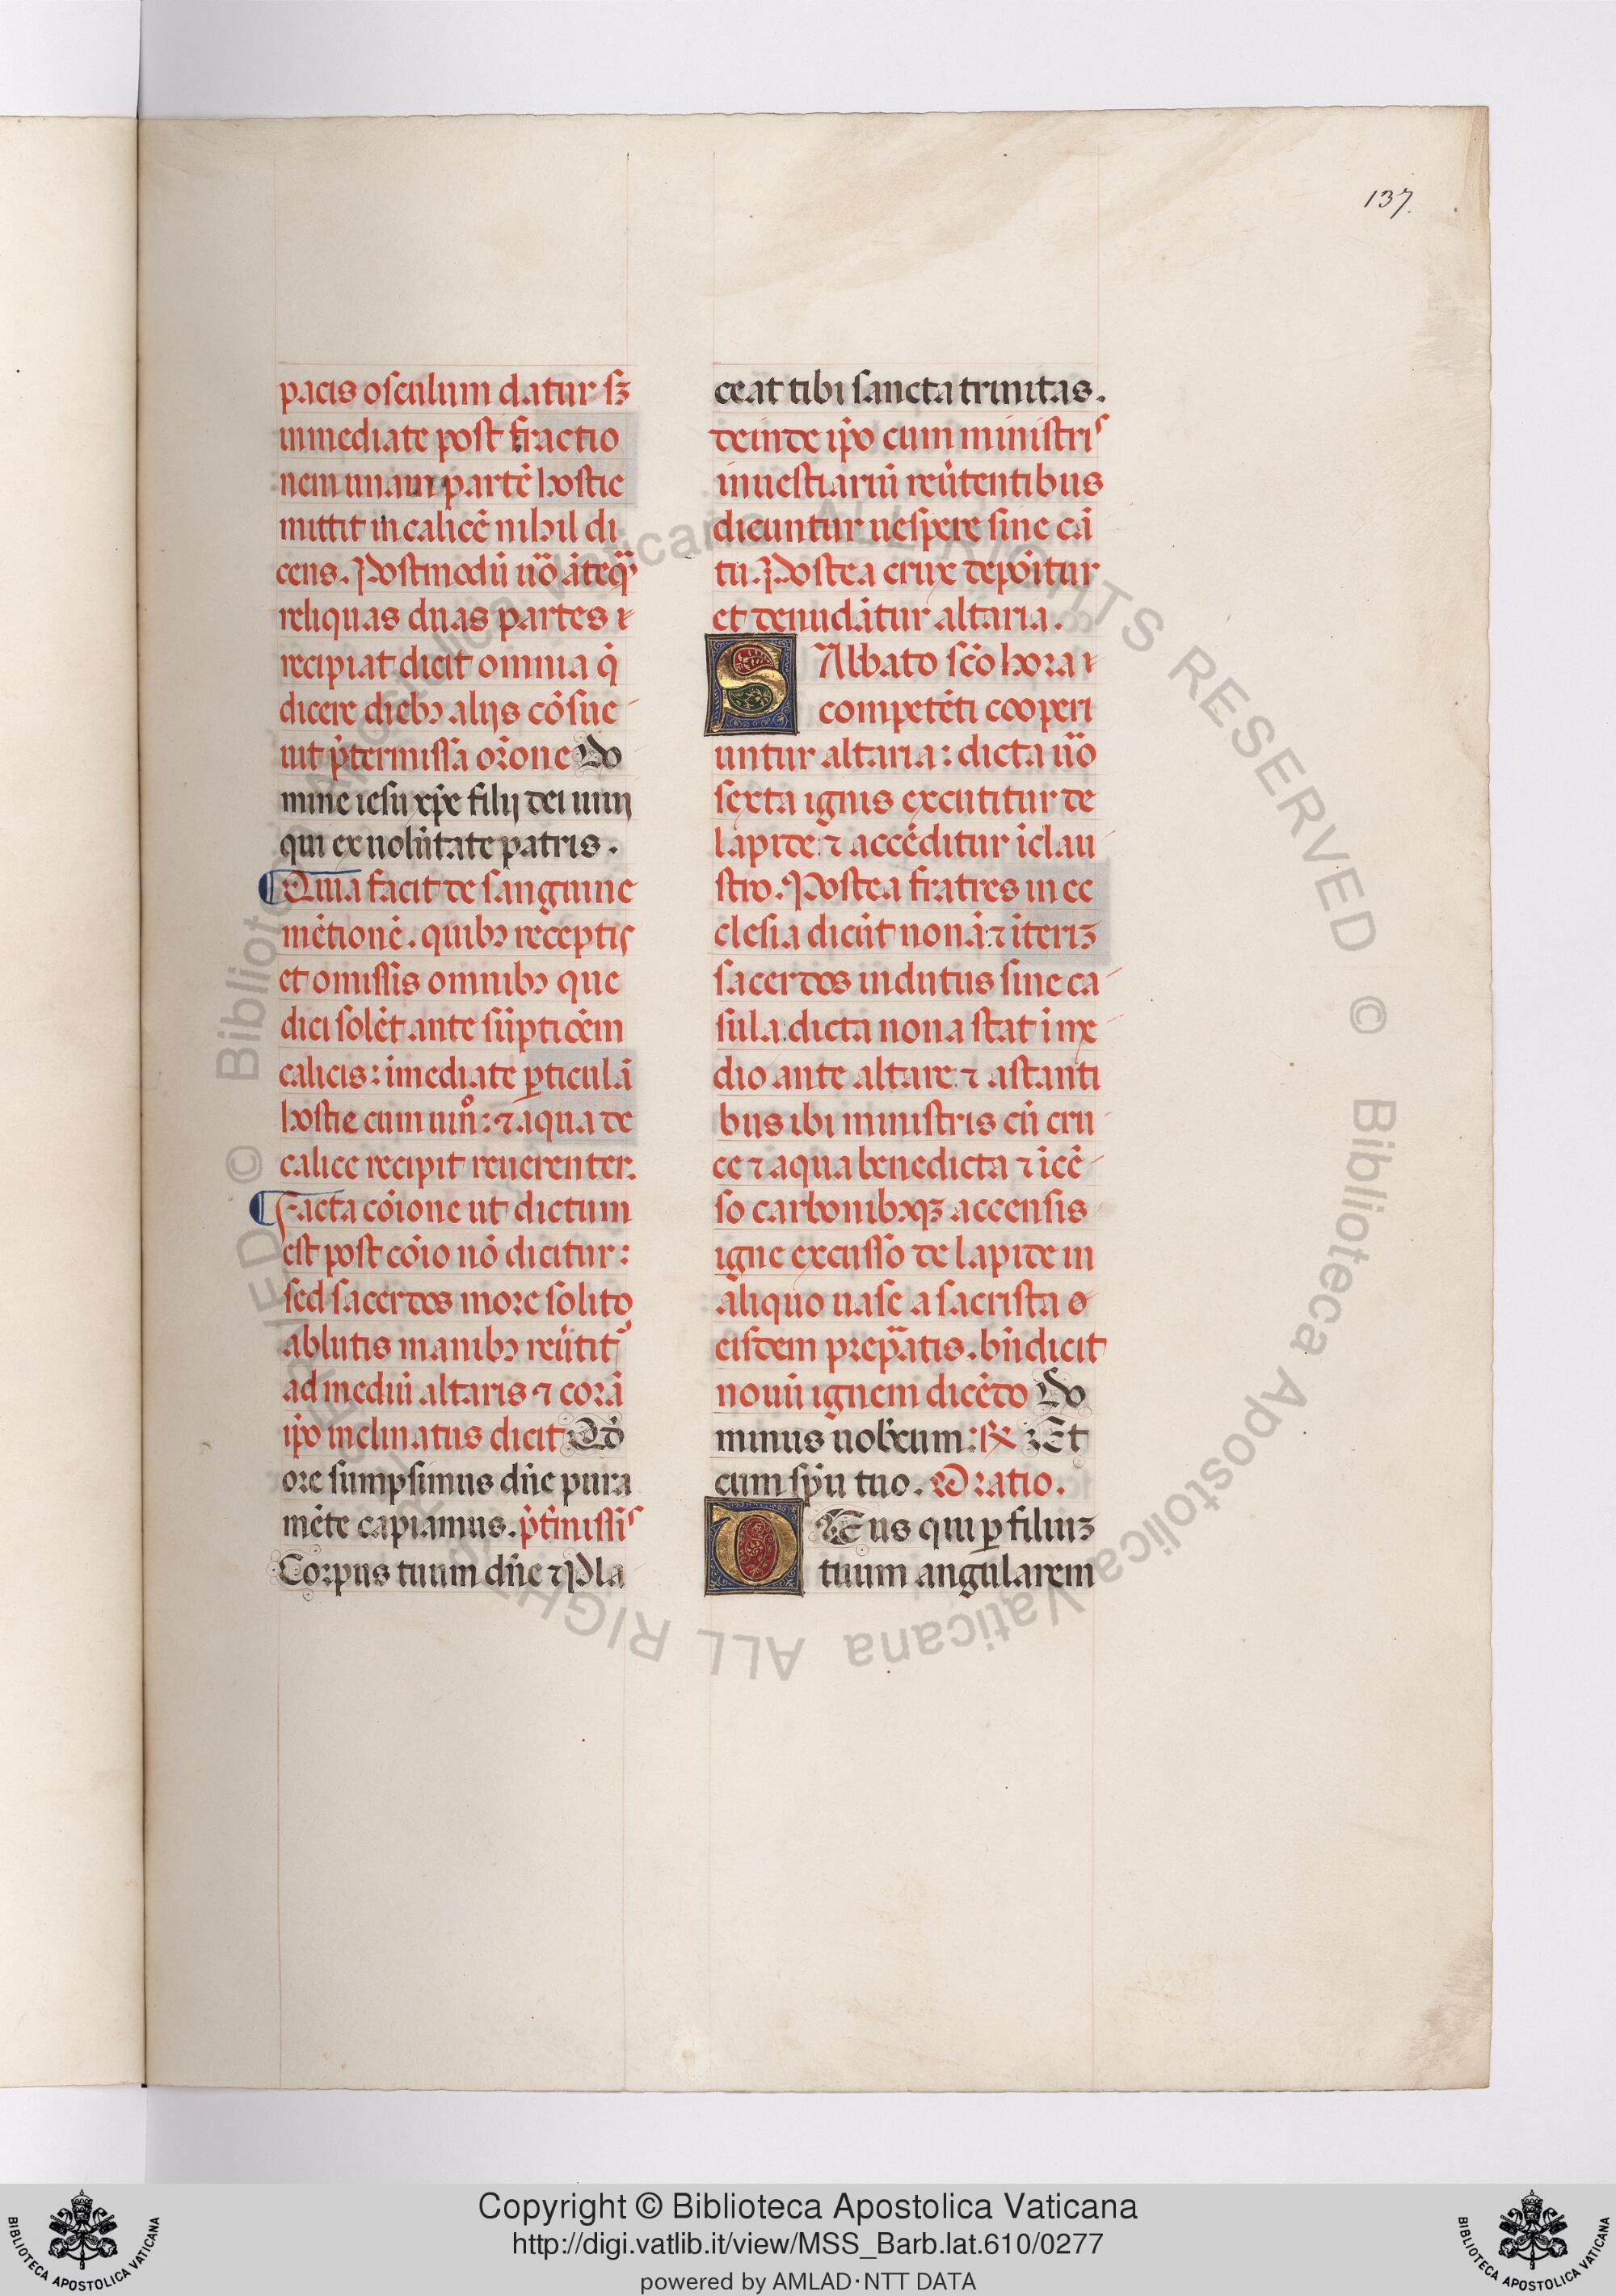 137.
pacis osculum datur sꝫ
inmediate post fractio
nem unam partē hostie
mittit in calicē nihil di
cens. Postmodū uͦo āteqᷓ
reliquas duas partes ⁊
recipiat dicit omnia q̄
dicere diebꝰ alijs cōsue
uit p̄termissa or̄one Do
mine iesu xp̄e filij dei uiui
qui ex uolūtate patris.
Quia facit de sanguine
mētionē. quibꝰ receptis
et omissis omnibꝰ que
dici solēt ante sūptioēm
calicis: īmediate ꝑticulā
hostie cum uinͦ: ⁊ aqua de
calice recipit reuerenter.
Facta cōione ut dictum
est post cōio nō dicitur:
sed sacerdos more solito
ablutis manibꝰ reūtitᷣ
ad mediū altaris ⁊ corā
ip̄o inclinatus dicit Qd̄
ore sumpsimus dn̄e pura
mēte capiamus. p̄tīnissis
Corpus tuum dn̄e ⁊ Pla
ceat tibi sancta trinitas.
deinde ip̄o cum ministris
in uestiariū reūtentibus
dicuntur uespere sine cā
tu. Postea crux depōitur
et denudātur altaria.
SAbbato sc̄o hora ⁊
competēti cooperi
untur altaria: dicta uͦo
sexta ignis excutitur de
lapide ⁊ accēditur ī clau
stro. Postea fratres in ec
clesia dicūt nonā ⁊ īterīꝫ
sacerdos indutus sine ca
sula dicta nona stat ī me
dio ante altare ⁊ astanti
bus ibi ministris cū cru
ce ⁊ aqua benedicta ⁊ īcē
so carbonibꝰqꝫ accensis
igne excusso de lapide in
aliquo uase a sacrista
eisdem prepᷓatis. bn̄dicit
nouū ignem dicēdo Do
minus uobcum: ℟ Et
cum sp̄u tuo. Oratio.
DEus qui ꝑ filiuꝫ
tuum angularem
© Biblioteca Apostolica Vaticana ALL RIGHTS RESERVED © Biblioteca Apostolica Vaticana ALL RIGHTS RESERVED
Copyright © Biblioteca Apostolica Vaticana
http://digi.vatlib.it/view/MSS_Barb.lat.610/0277
powered by AMLAD·NTT DATA
BIBLIOTECA APOSTOLICA VATICANA
BIBLIOTECA APOSTOLICA VATICANA